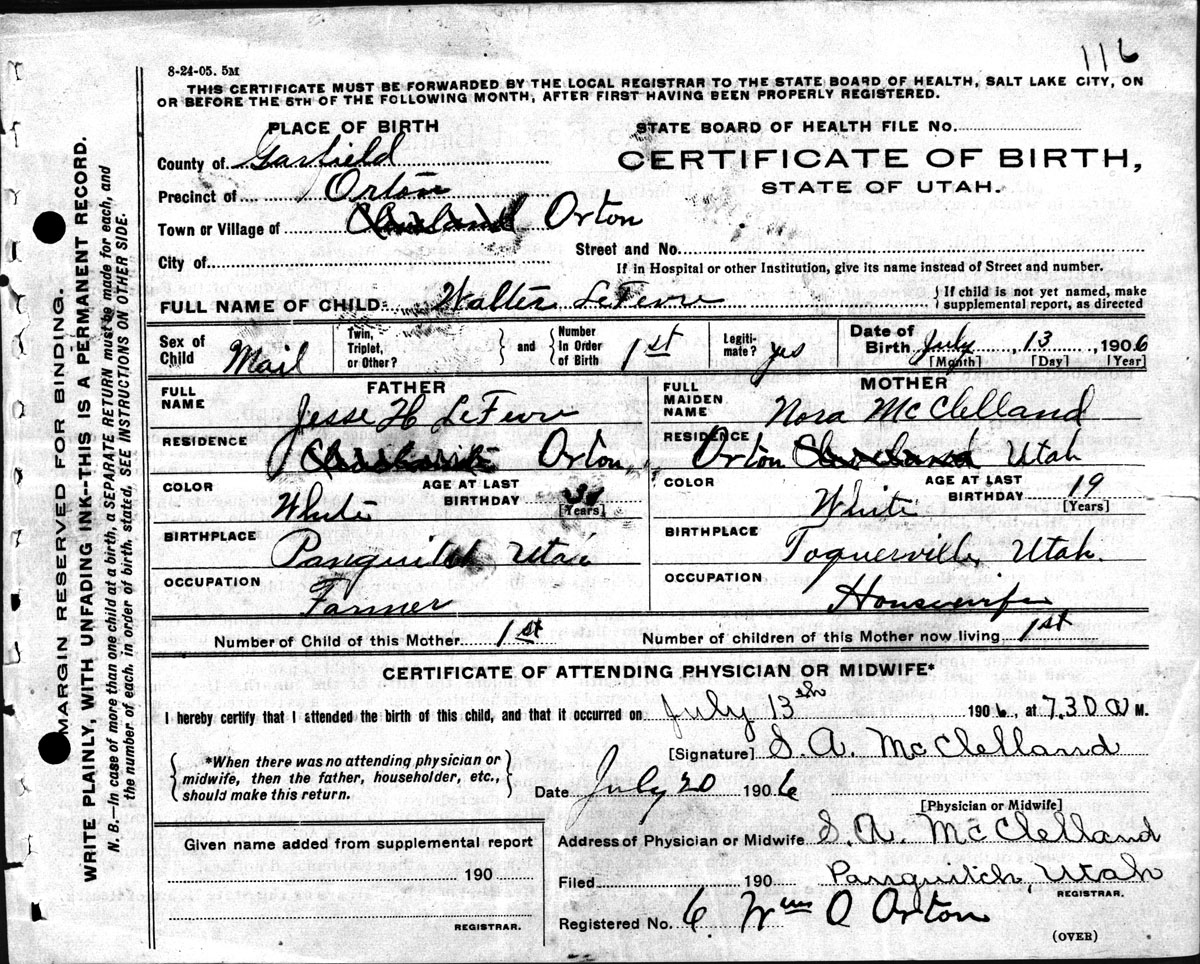 116
8-24-05. 5M
THIS CERTIFICATE MUST BE FORWARDED BY THE LOCAL REGISTRAR TO THE STATE BOARD OF HEALTH, SALT LAKE CITY, ON
OR BEFORE THE 5TH OF THE FOLLOWING MONTH, AFTER FIRST HAVING BEEN PROPERLY REGISTERED.
PLACE OF BIRTH
STATE BOARD OF HEALTH FILE No.
County of Garfield
CERTIFICATE OF BIRTH,
STATE OF UTAH.
Precinct of Orton
Town or Village of Orton
Street and No.
City of
If in Hospital or other Institution, give its name instead of Street and number.
FULL NAME OF CHILD Walter LeFevre
If child is not yet named, make
supplemental report, as directed
Sex of Child Mail
Twin, Triplet, or Other?
and
Number In Order of Birth 1st
Legiti- mate? yes
Date of Birth July 13, 1906
[Month] [Day] [Year]
FATHER
FULL NAME Jesse H LeFevre
RESIDENCE Orton,
COLOR White
AGE AT LAST BIRTHDAY
[Years]
BIRTHPLACE Panguitch Utah
OCCUPATION Farmer
MOTHER
FULL MAIDEN NAME Nora McClelland
RESIDENCE Orton Utah
COLOR White
AGE AT LAST BIRTHDAY 19
[Years]
BIRTHPLACE Toquerville, Utah.
OCCUPATION Housewife
Number of Child of this Mother 1st
Number of children of this Mother now living 1st
CERTIFICATE OF ATTENDING PHYSICIAN OR MIDWIFE*
I hereby certify that I attended the birth of this child, and that it occurred on July 13th 1906, at 7.30 a M.
[Signature] S. A. McClelland
*When there was no attending physician or
midwife, then the father, householder, etc.,
should make this return.
Date July 20 1906
[Physician or Midwife]
Given name added from supplemental report
190
REGISTRAR.
Address of Physician or Midwife S. A. McClelland
Panguitch, Utah
Filed 190
REGISTRAR.
Registered No. 6 Wm O Orton
(OVER)
MARGIN RESERVED FOR BINDING.
WRITE PLAINLY, WITH UNFADING INK--THIS IS A PERMANENT RECORD.
N. B.—In case of more than one child at a birth, a SEPARATE RETURN must be made for each, and
the number of each, in order of birth, stated. SEE INSTRUCTIONS ON OTHER SIDE.